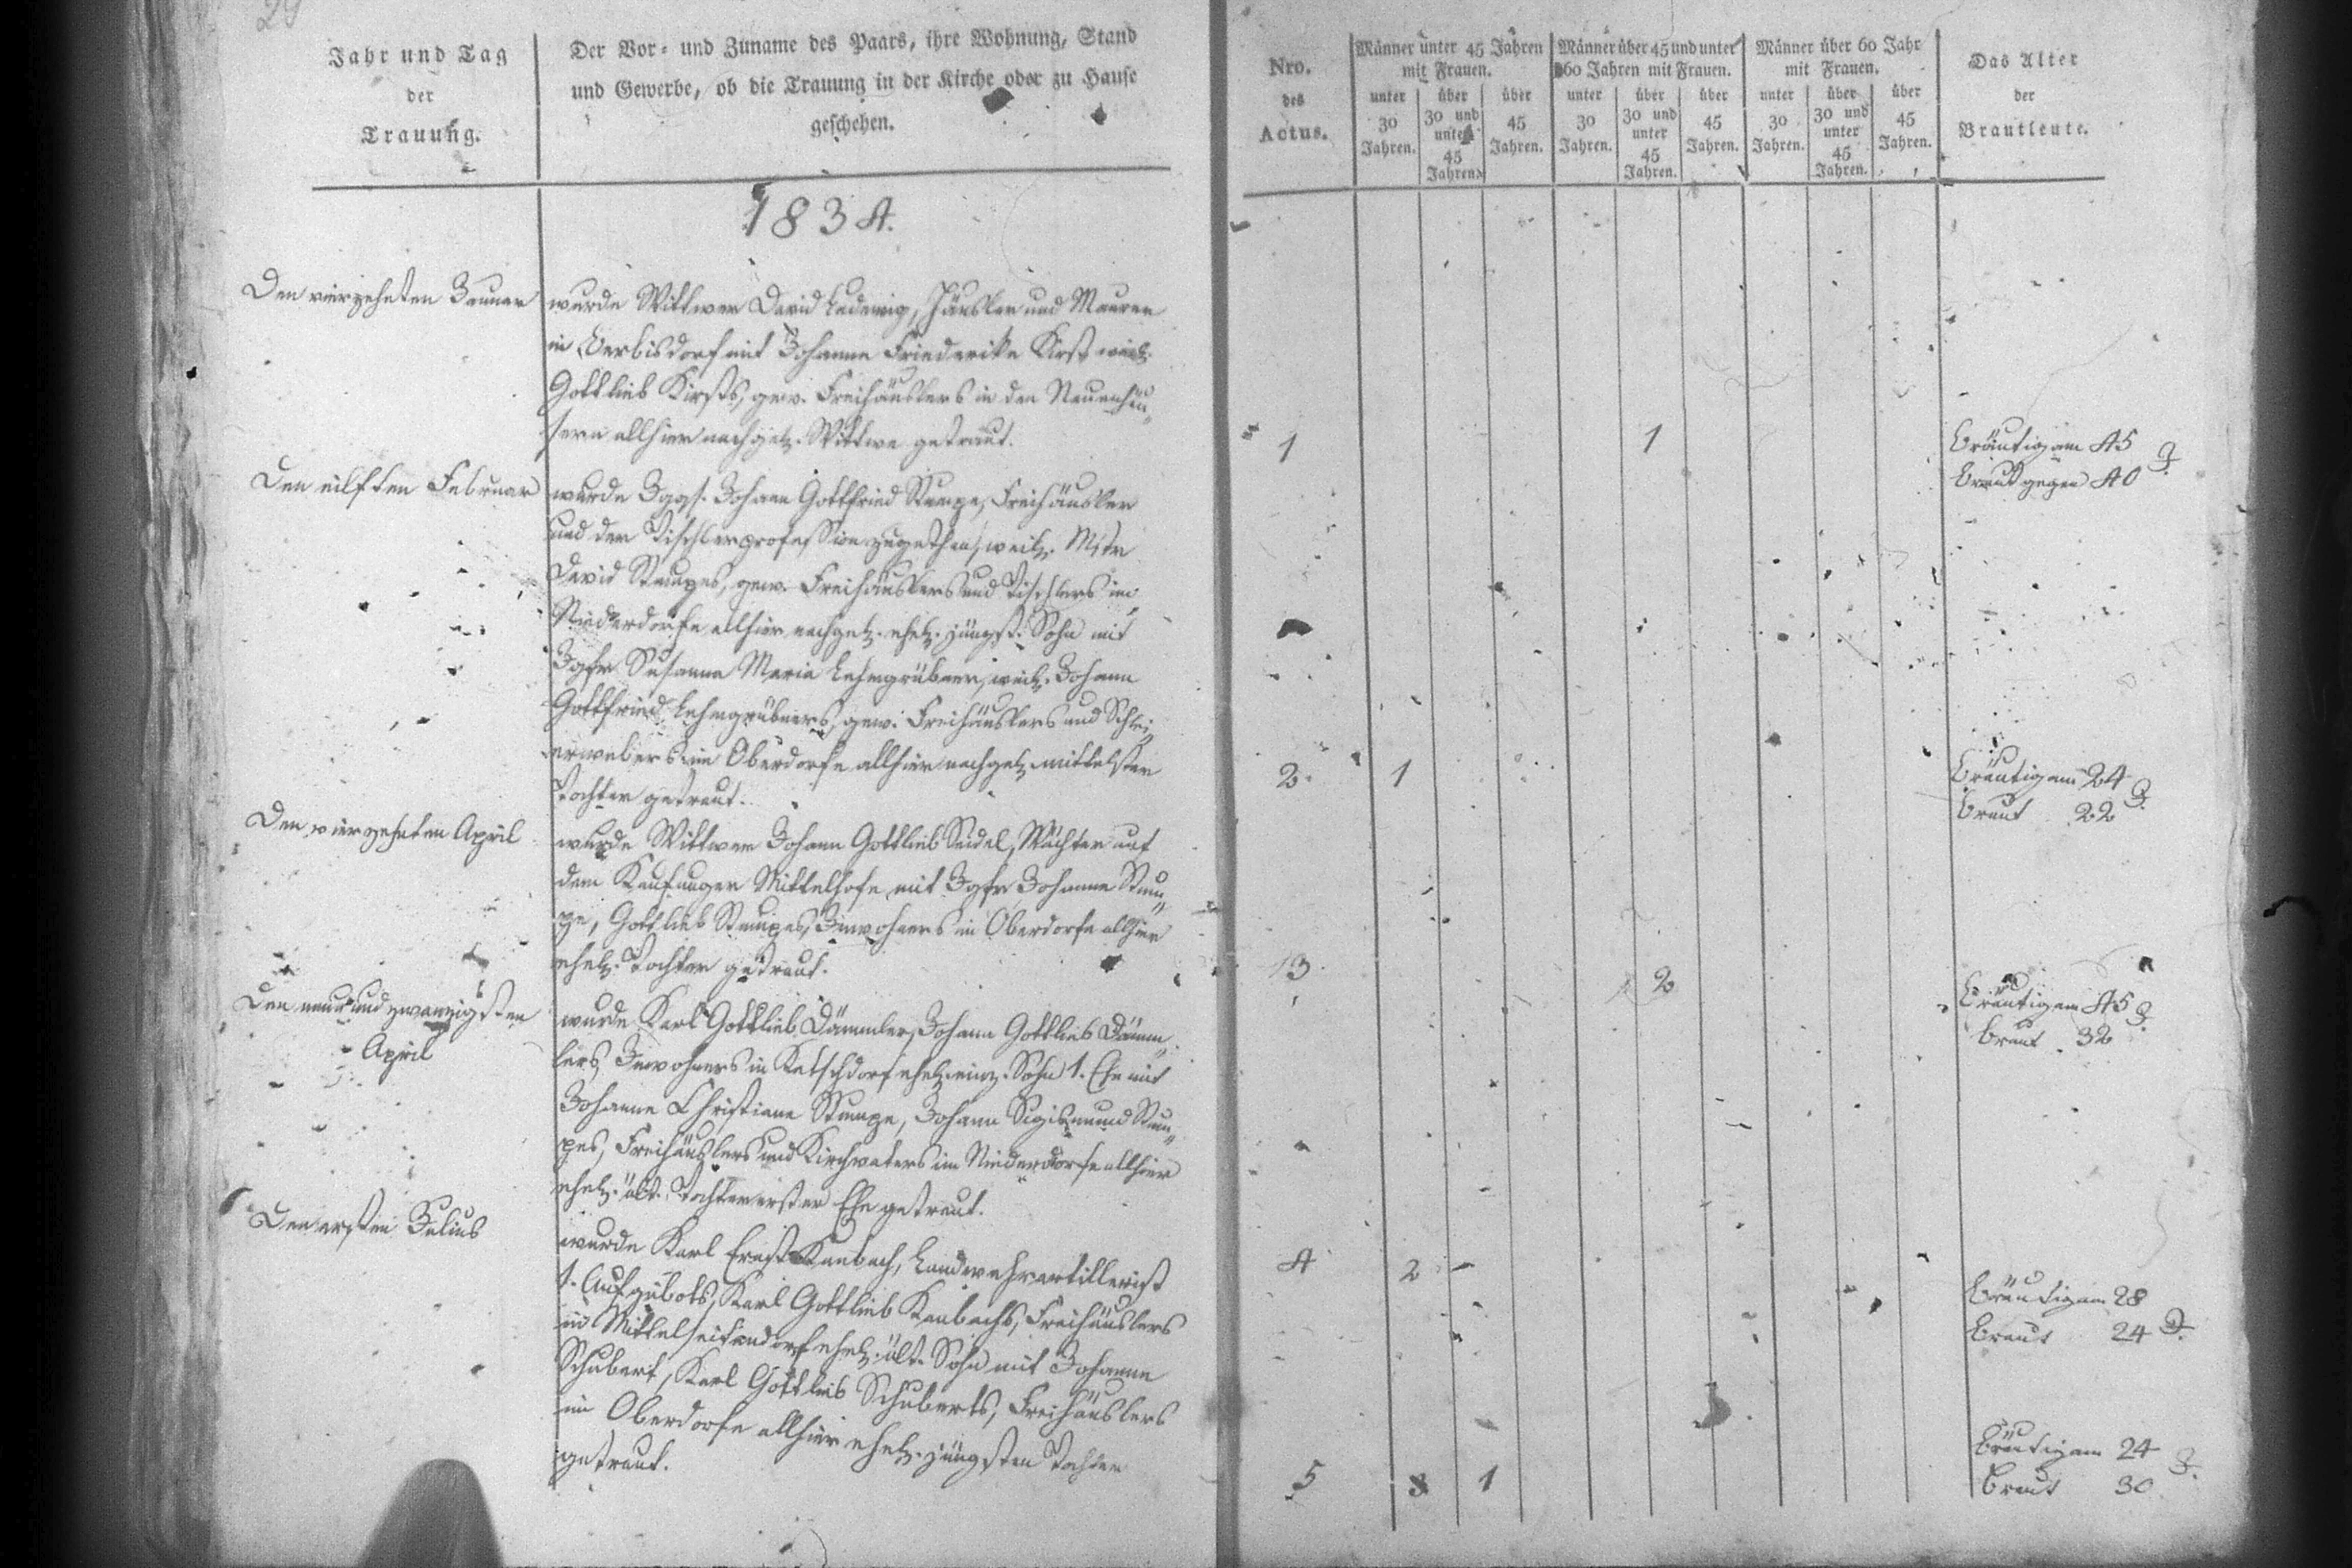 29
Jahr und Tag
der
Trauung.
Der Vor- und Zuname des Paars, ihre Wohnung, Stand
und Gewerbe, ob die Trauung in der Kirche oder zu Hause
geschehen.
Nro.
des
Actus.
Männer unter 45 Jahren
mit Frauen.
unter
30
Jahren.
über
30 und
unter
45
Jahren.
über
45
Jahren.
Männer über 45 und unter
60 Jahren mit Frauen.
unter
30
Jahren.
über
30 und
unter
45
Jahren.
über
45
Jahren.
Männer über 60 Jahr
mit Frauen.
unter
30
Jahren.
über
30 und
unter
45
Jahren.
über
45
Jahren.
Das Alter
der
Brautleute.
1834.
Den vierzehnten Januar
wurde Wittwer David Ludewig, Häusler und Maurer
in Berbisdorf mit Johanne Friederike Kirst weil.
Gottlieb Kirsts, gew. Freihäuslers in den Neuenhäu-
sern allhier nachgel. Wittwe getraut.
1
1
Bräutigam 45
Braut gegen 40 J.
Den eilften Februar
wurde Jggs. Johann Gottfried Stumpe, Freihäusler
und der Tischlerprofession zugethan, weil. Mstr
David Stumpes, gew. Freihäuslers und Tischlers im
Niederdorfe allhier nachgel. ehel. jüngst. Sohn mit
Jgfr Susanna Maria Lehmgrübner, weil. Johann
Gottfried Lehmgrübners, gew. Freihäuslers und Schlei-
erwebers im Oberdorfe allhier nachgel. mittelsten
Tochter getraut.
2
1
Bräutigam 24
Braut 22 J.
Den vierzehnten April
wurde Wittwer Johann Gottlieb Seidel, Wächter auf
dem Kauffunger Mittelhofe mit Jgfr Johanne Stum-
pe, Gottlieb Stumpes, Inwohners in Oberdorfe allhier
ehel. Tochter getraut.
3
2
Bräutigam 45
Braut 32 J.
Den neun und zwanzigsten
April
wurde Karl Gottlieb Dämmler, Johann Gottlieb Dämm-
lers, Inwohners in Ketschdorf ehel. einz. Sohn 1. Ehe mit
Johanne Christiane Stumpe, Johann Sigismund Stum-
pes, Freihäuslers und Kirchvaters im Niederdorfe allhier
ehel. ält. Tochter erster Ehe getraut.
4
2
Bräutigam 28
Braut 24 J.
Den ersten Julius
wurde Karl Ernst Kambach, Landwehrartillerist
1. Aufgebots, Karl Gottlieb Kambachs, Freihäuslers
in Mittelleipersdorf ehel. ält. Sohn mit Johanne
Schubert, Karl Gottlieb Schuberts, Freihäuslers
im Oberdorfe allhier ehel. jüngsten Tochter
getraut.
5
1
Bräutigam 24
Braut 30 J.